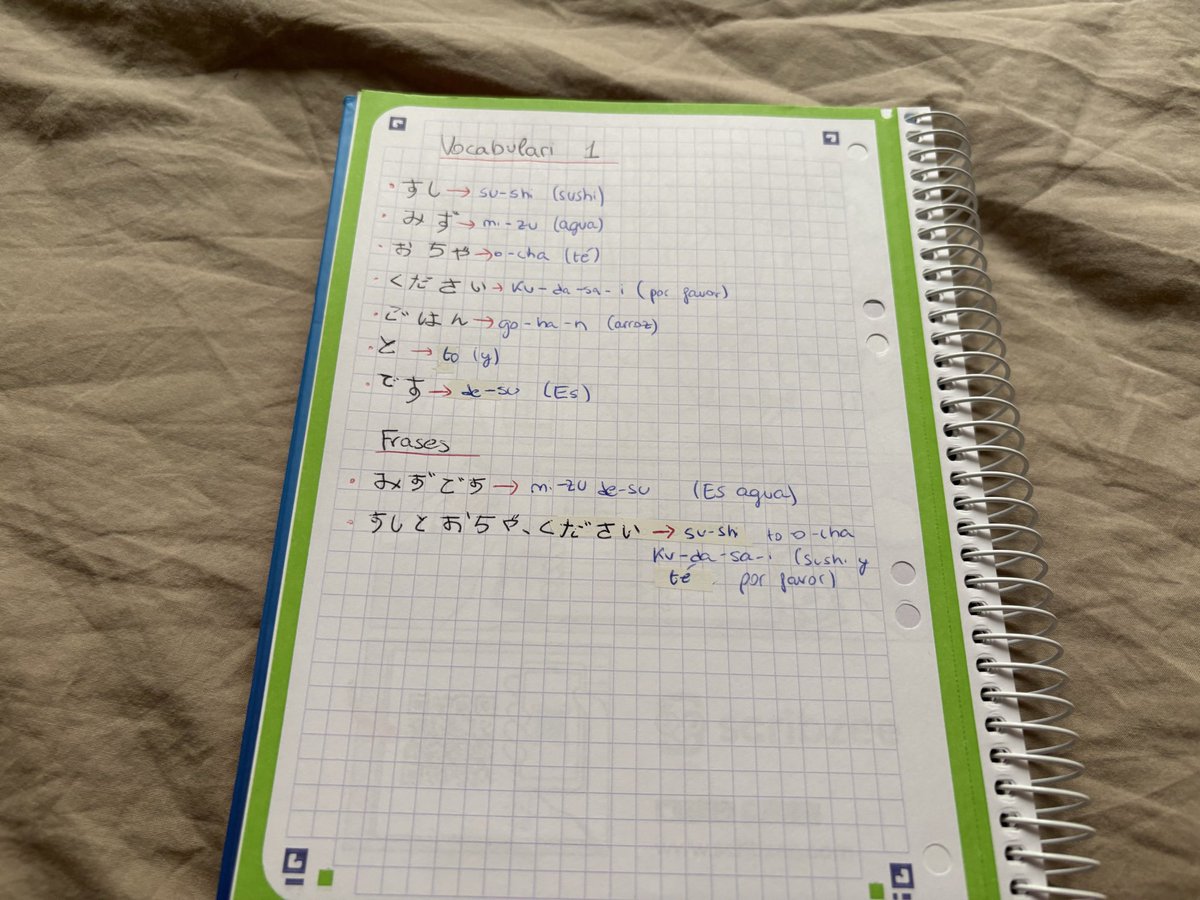 Vocabulari 1
· すし → su-shi (sushi)
· みず → mi-zu (agua)
· おちゃ → o-cha (té)
· ください → Ku-da-sa-i (por favor)
· ごはん → go-ha-n (arroz)
· と → to (y)
· です → de-su (Es)
Frases
· みずです → mi-zu de-su (Es agua)
· すしとおちゃ、ください → su-shi to o-cha
Ku-da-sa-i (sushi y
té por favor)